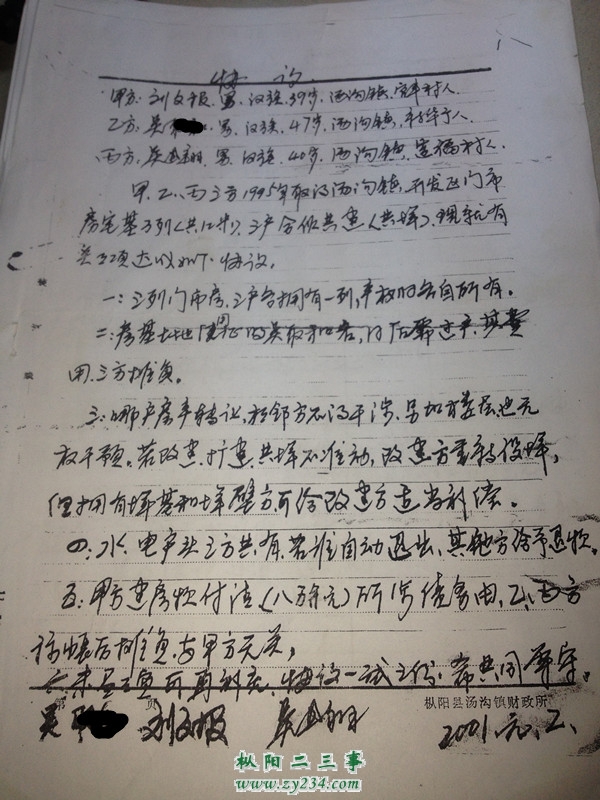 协议
甲方:刘文报 男、汉族、39岁、汤沟镇、富丰村人
乙方:吴 男、汉族、47岁、汤沟镇、村人
丙方:吴 男、汉族、40岁、汤沟镇、村人
甲、乙、丙三方1995年取得汤沟镇开发区门市
房宅基三列(共12米)、三户合伙共建(共墙)、现就有
关事项达成如下协议。
一:三列门市房、三户各拥有一列,产权归各自所有。
二:房基土地使用证的 其费
用、三方摊负。
三:哪户房产转让、相邻方不得干涉、另加层也无
权干预。若改建、扩建、共墙不准动,改建方重新
但拥有墙基和墙壁方可给改建方适当补偿。
四:水、电户头三方共有、若谁自动退出、其他方给予退款。
五:甲方建房款付清(八万余元)所涉债务由乙、丙方
摊负与甲方无关。
六:未尽事项可再补充、协议一式三份、希共同遵守。
第 页
枞阳县汤沟镇财政所
吴 刘文报 吴
2001.元.2.
枞阳二三事
www.zy234.com